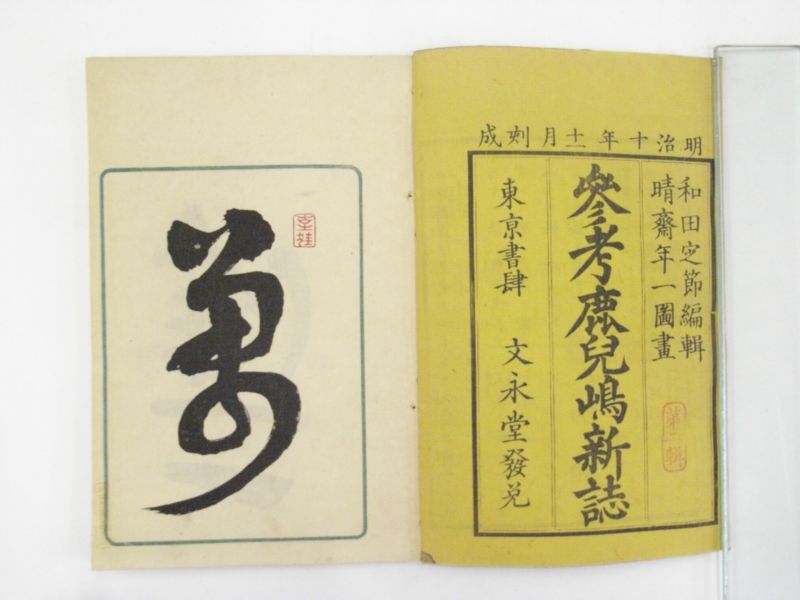 明治十年十二月刻成
和田定節編輯
晴齋年一圖畫
第二輯
參考鹿兒嶋新誌
東京書肆 文永堂發兌
萬